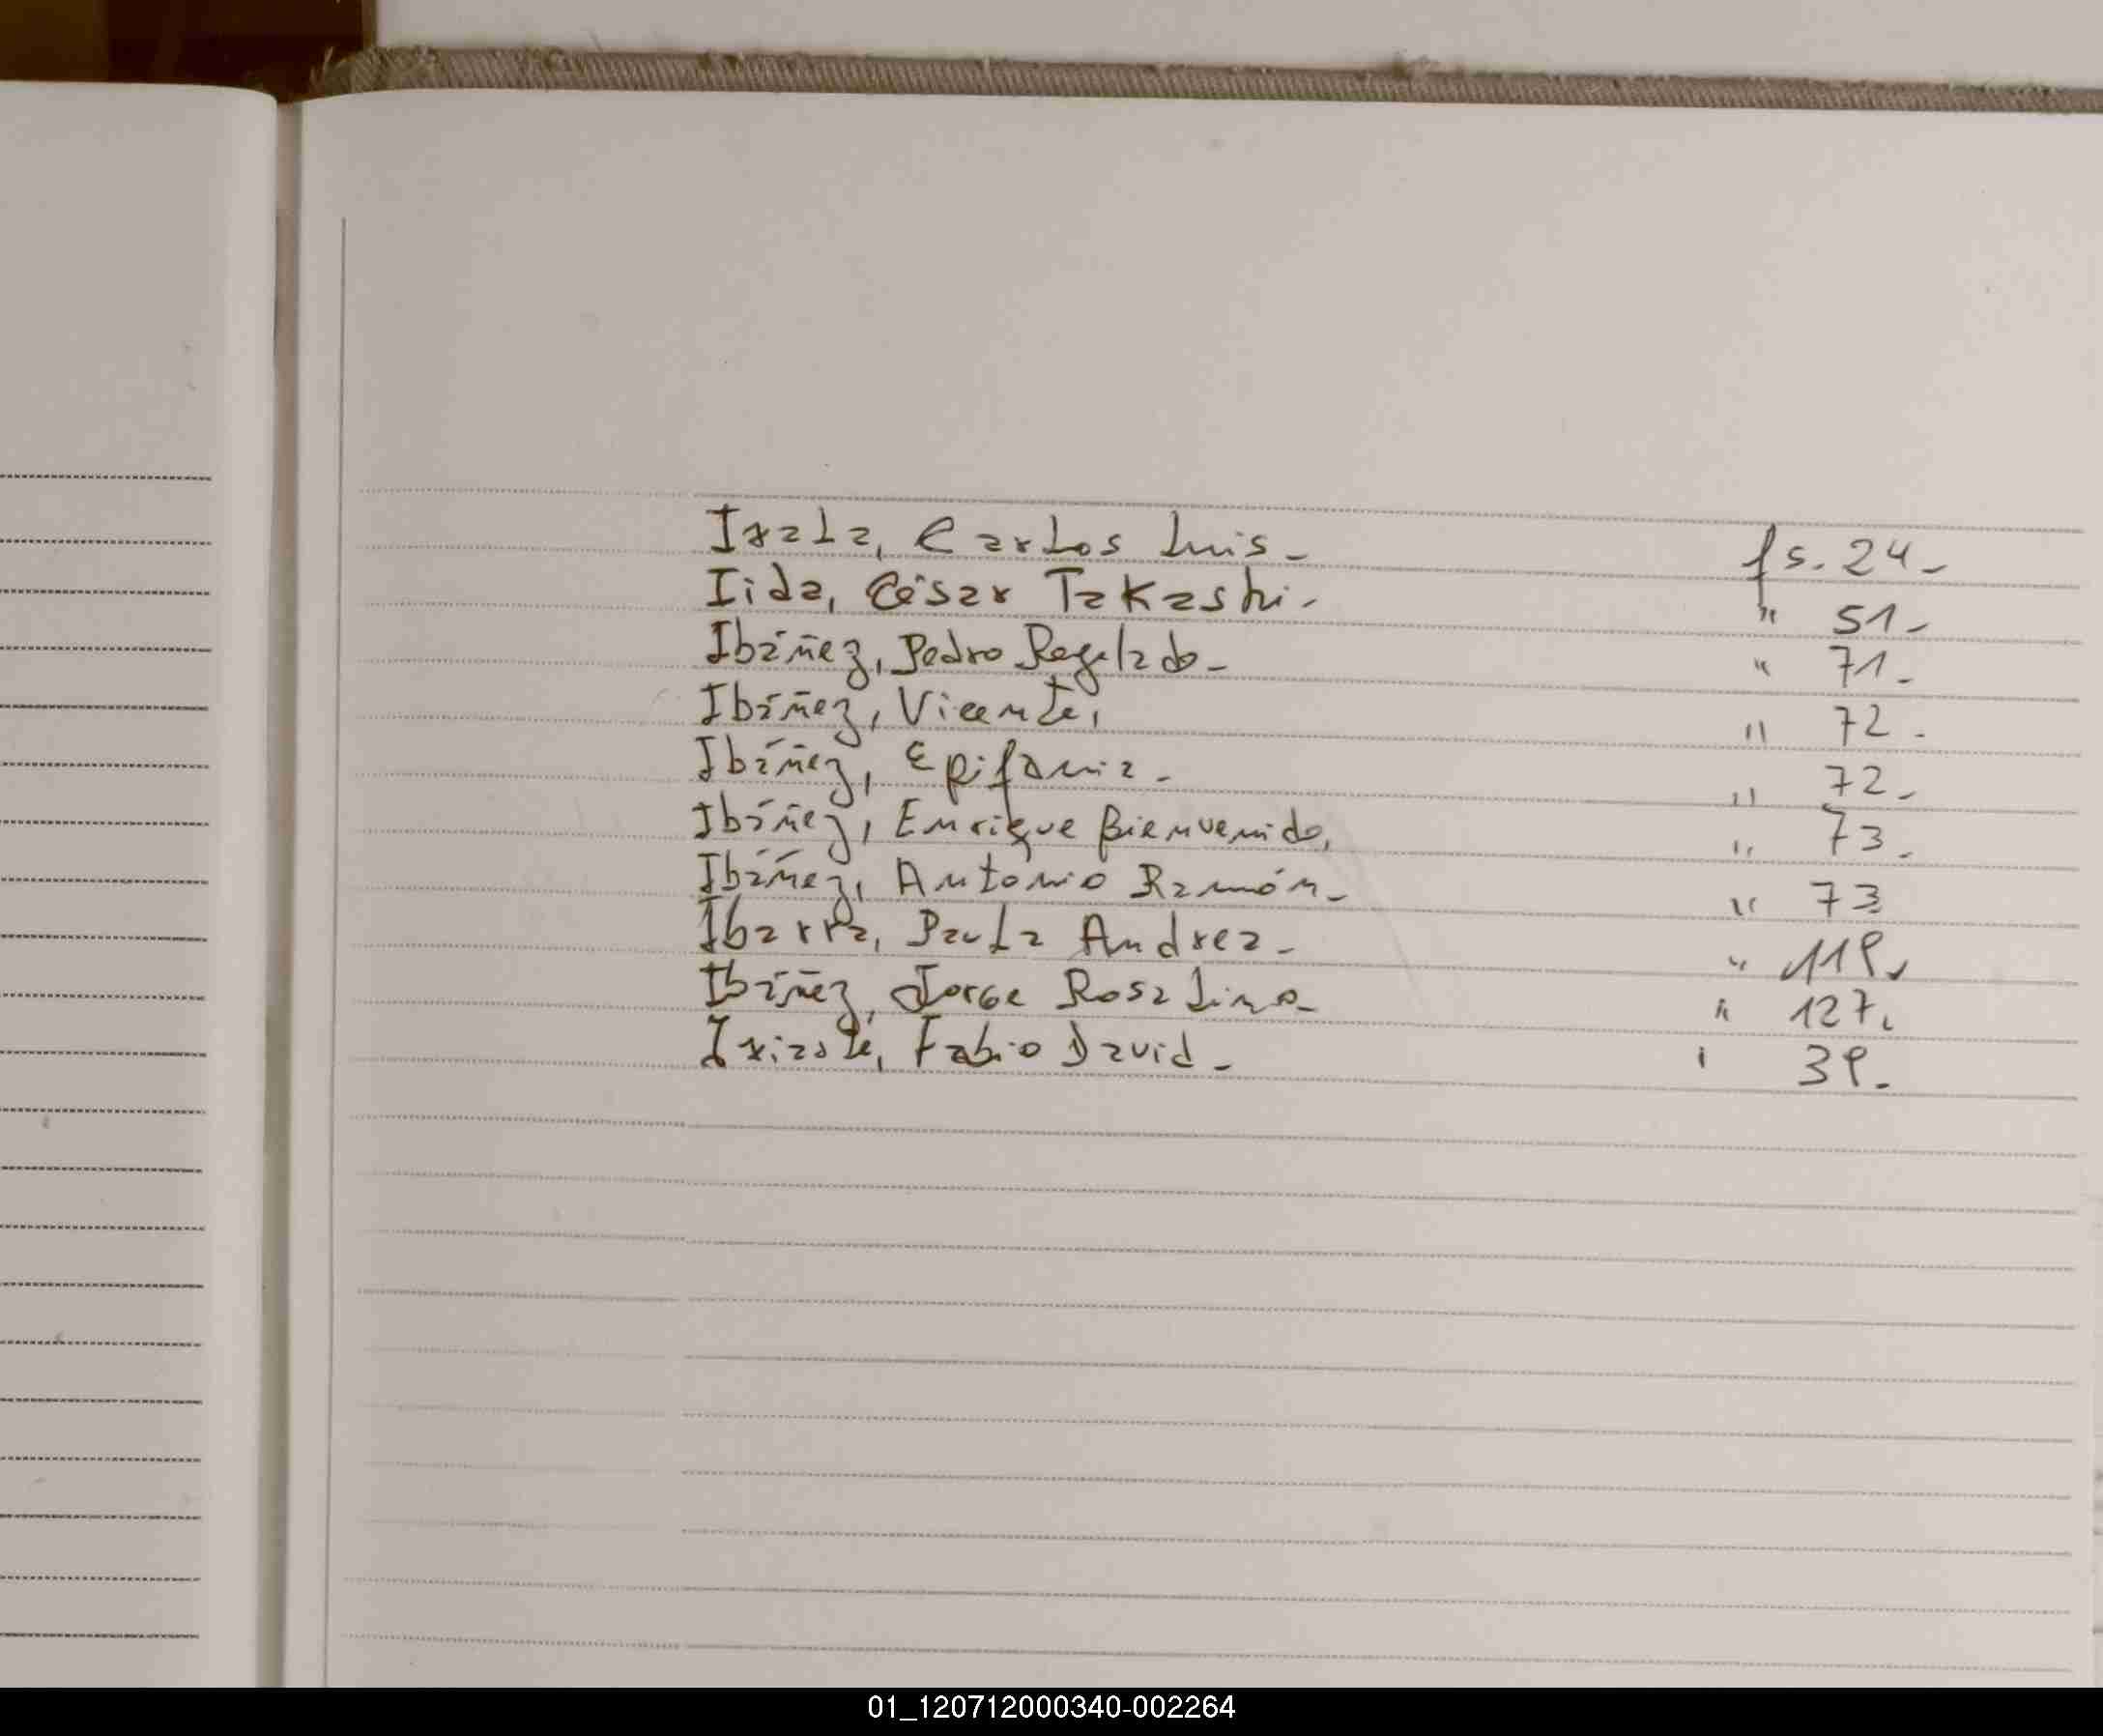 Irala, Carlos Luis - fs. 24 -
Iida, César Takashi - " 51 -
Ibáñez, Pedro Regalado - " 71 -
Ibáñez, Vicente, " 72 -
Ibáñez, Epifania - " 72 -
Ibáñez, Enrique Bienvenido, " 73 -
Ibáñez, Antonio Ramón - " 73
Ibarra, Paula Andrea - " 119,
Ibáñez, Jorge Rosalino - " 127,
Fabio David - " 39 -
01_120712000340-002264